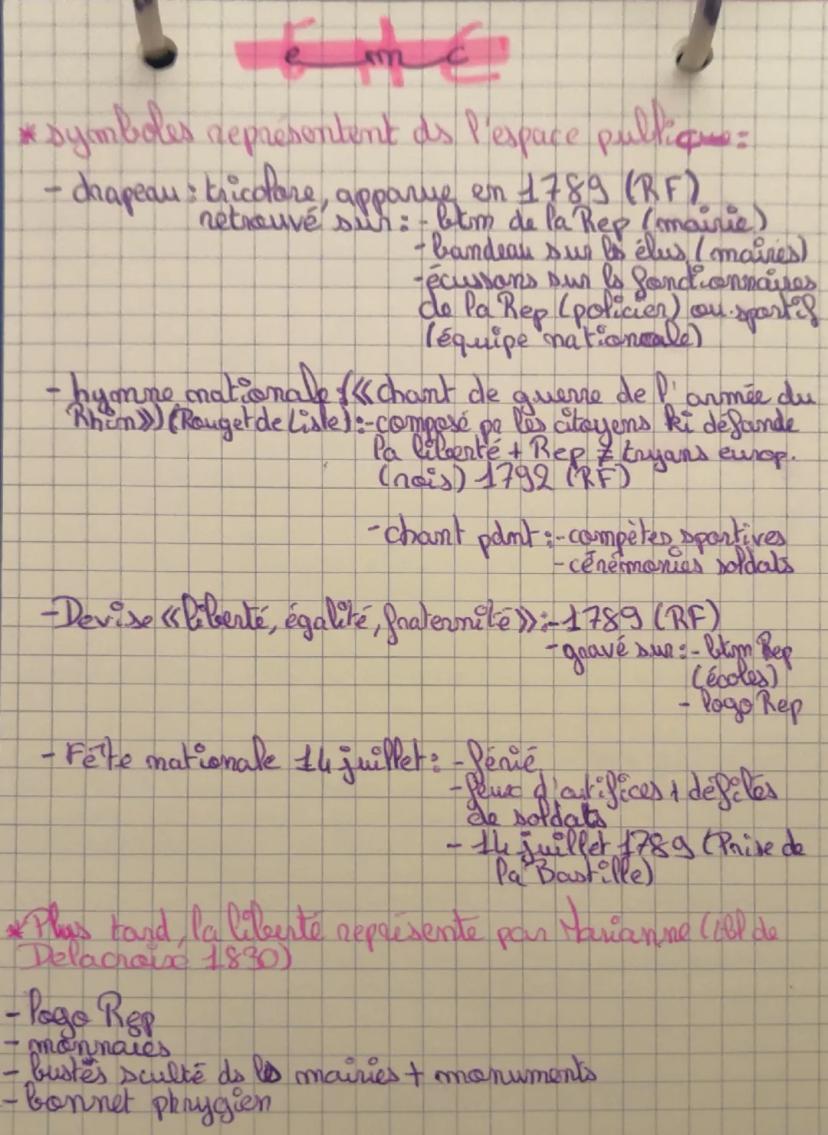 emc
* symboles représentent ds l'espace publique:
- drapeau : tricolore, apparue en 1789 (RF)
retrouvé sur : - btm de la Rep (mairie)
- bandeau sur ls élus (maires)
- écussons sur ls fonctionnaires
de la Rep (policier) ou sportif
(équipe nationale)
- hymne nationale (« chant de guerre de l'armée du
Rhin ») (Rouget de Lisle) : - composé pa les citoyens ki défande
la liberté + Rep ≠ tryans europ.
(rois) 1792 (RF)
- chant pdmt : - compètes sportives
- cérémonies soldats
- Devise « liberté, égalité, fraternité » : - 1789 (RF)
- gravé sur : - btm Rep
(écoles)
- logo Rep
- Fête nationale 14 juillet : - férié
- feux d'artifices + défilés
de soldats
- 14 juillet 1789 (Prise de
la Bastille)
* Plus tard, la liberté représente par Marianne (tbl de
Delacroix 1830)
- logo Rep
- monnaies
- bustes sculté ds ls mairies + monuments
- bonnet phrygien